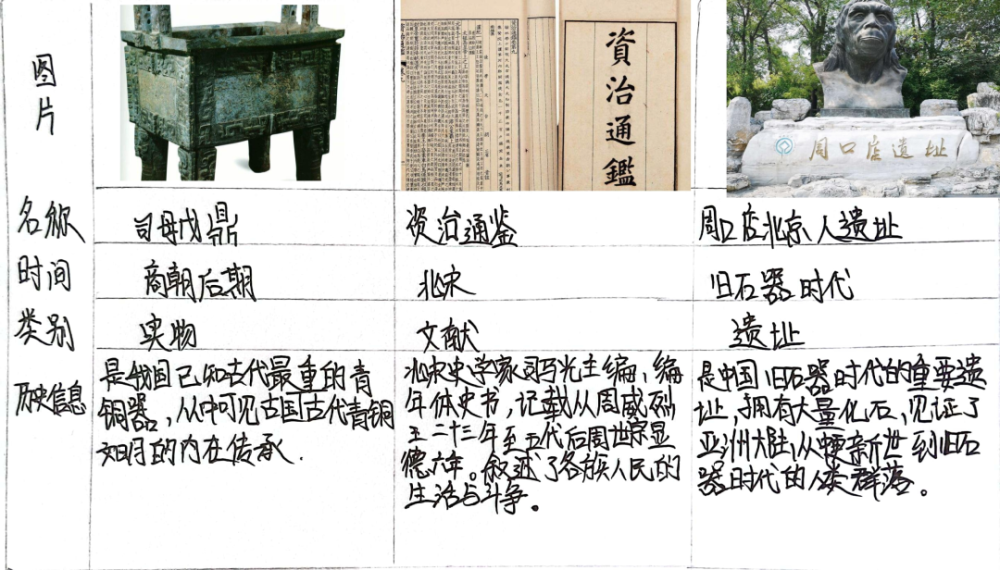 图片
資治通鑑
周口店遗址
名称
司母戊鼎
资治通鉴
周口店北京人遗址
时间
商朝后期
北宋
旧石器时代
类别
实物
文献
遗址
历史信息
是我国已知古代最重的青
铜器，从中可见古国古代青铜
文明的内在传承.
北宋史学家司马光主编、编
年体史书，记载从周威烈
王二十三年至五代后周世宗显
德六年。叙述了各族人民的
生活与斗争。
是中国旧石器时代的重要遗
址，拥有大量化石，见证了
亚洲大陆从中更新世到旧石
器时代的人类群落。